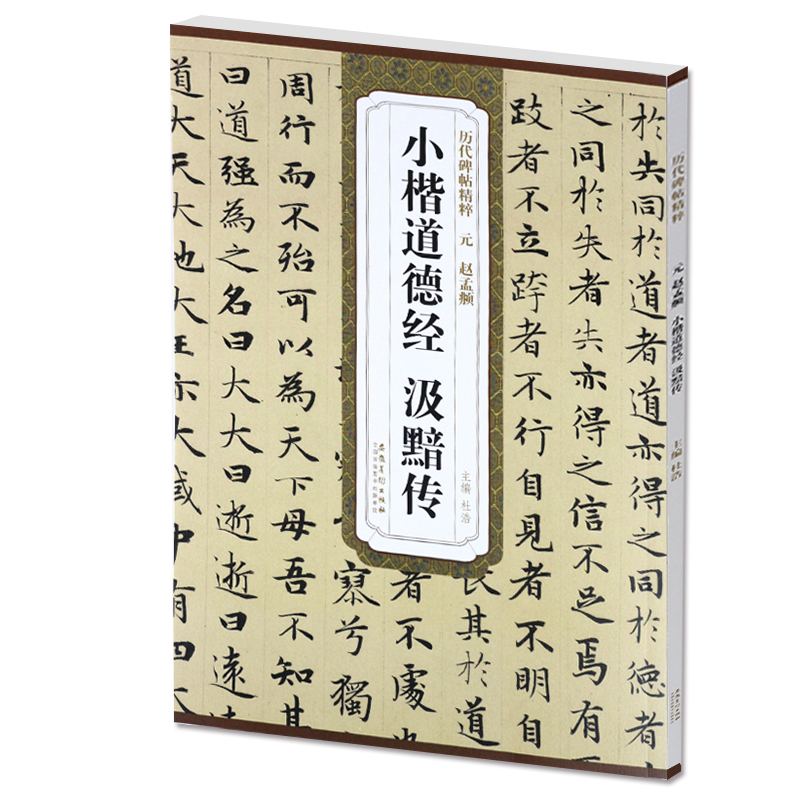 历代碑帖精粹 元 赵孟頫
小楷道德经 汲黯传
主编 杜浩
安徽美术出版社
全国百佳图书出版单位
於失同於道者道亦得之同於徳者
之同於失者失亦得之信不足焉有
跂者不立跨者不行自見者不明自
長其於道
者不處也
寥兮獨
周行而不殆可以為天下母吾不知其
曰道強為之名曰大大曰逝逝曰遠
道大天大地大王亦大域中有四大
历代碑帖精粹 元 赵孟頫 小楷道德经 汲黯传 主编 杜浩